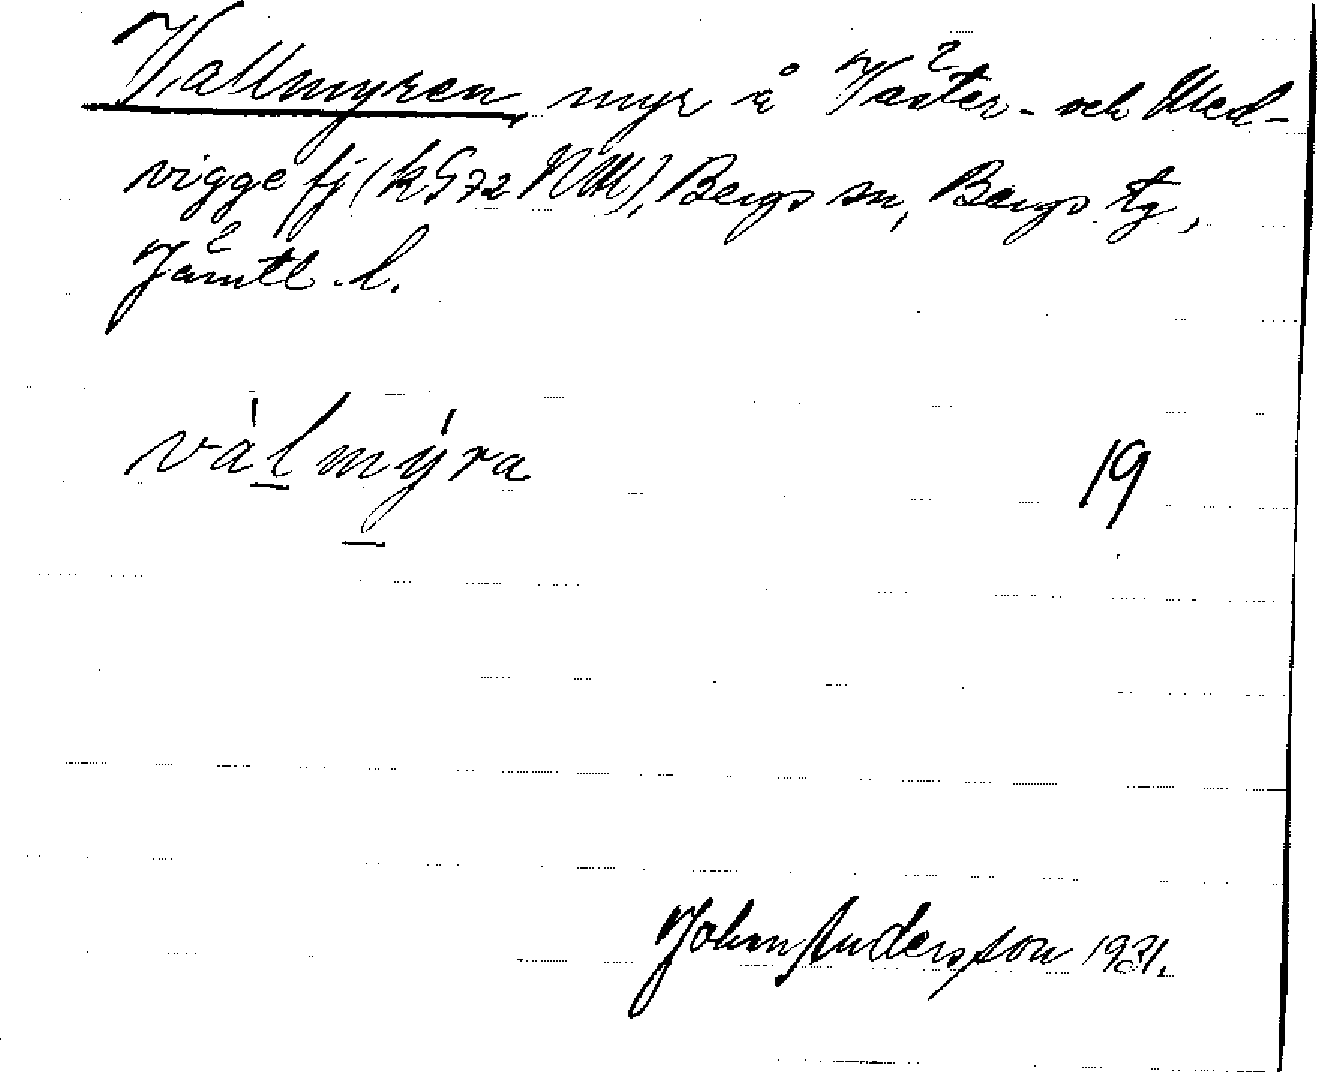 Vallmyren, myr å Väster- och Med-
vigge fj (k 572 NM), Bergs sn, Bergs tg,
Jämtl. l.
vàlmýra
19
John Andersson 1931.